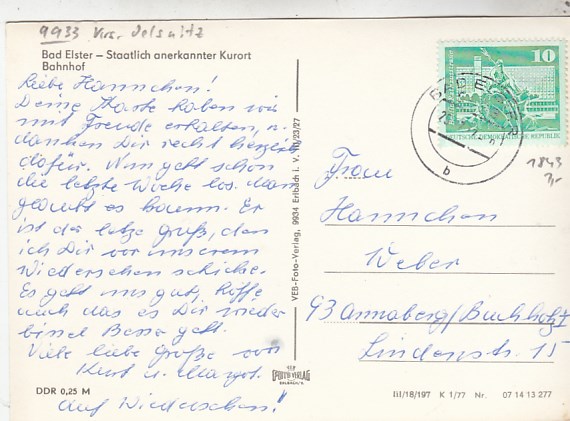 9933 Krs. Oelsnitz
Bad Elster – Staatlich anerkannter Kurort
Bahnhof
Liebe Hannchen!
Deine Karte haben wir
mit Freude erhalten, u.
danken Dir recht herzlich
dafür. Nun geht schon
die letzte Woche los. Man
glaubt es kaum. Er
ist der letze Gruß, den
ich Dir vor unserem
Wiedersehen schicke.
Es geht uns gut, hoffe
auch das es Dir wieder
bissel Besser geht.
Viele liebe Grüße von
Kurt u. Margot.
Auf Wiedersehen!
DDR 0,25 M
VEB-Foto-Verlag, 9934 Erlbach i. V.
10
DEUTSCHE DEMOKRATISCHE REPUBLIK
BAD ELSTER
b
1843
Frau
Hannchen
Weber
93 Annaberg/Buchholz 1
Lindenstr. 15
VEB
FOTO-VERLAG
ERLBACH
III/18/197 K 1/77 Nr. 07 14 13 277